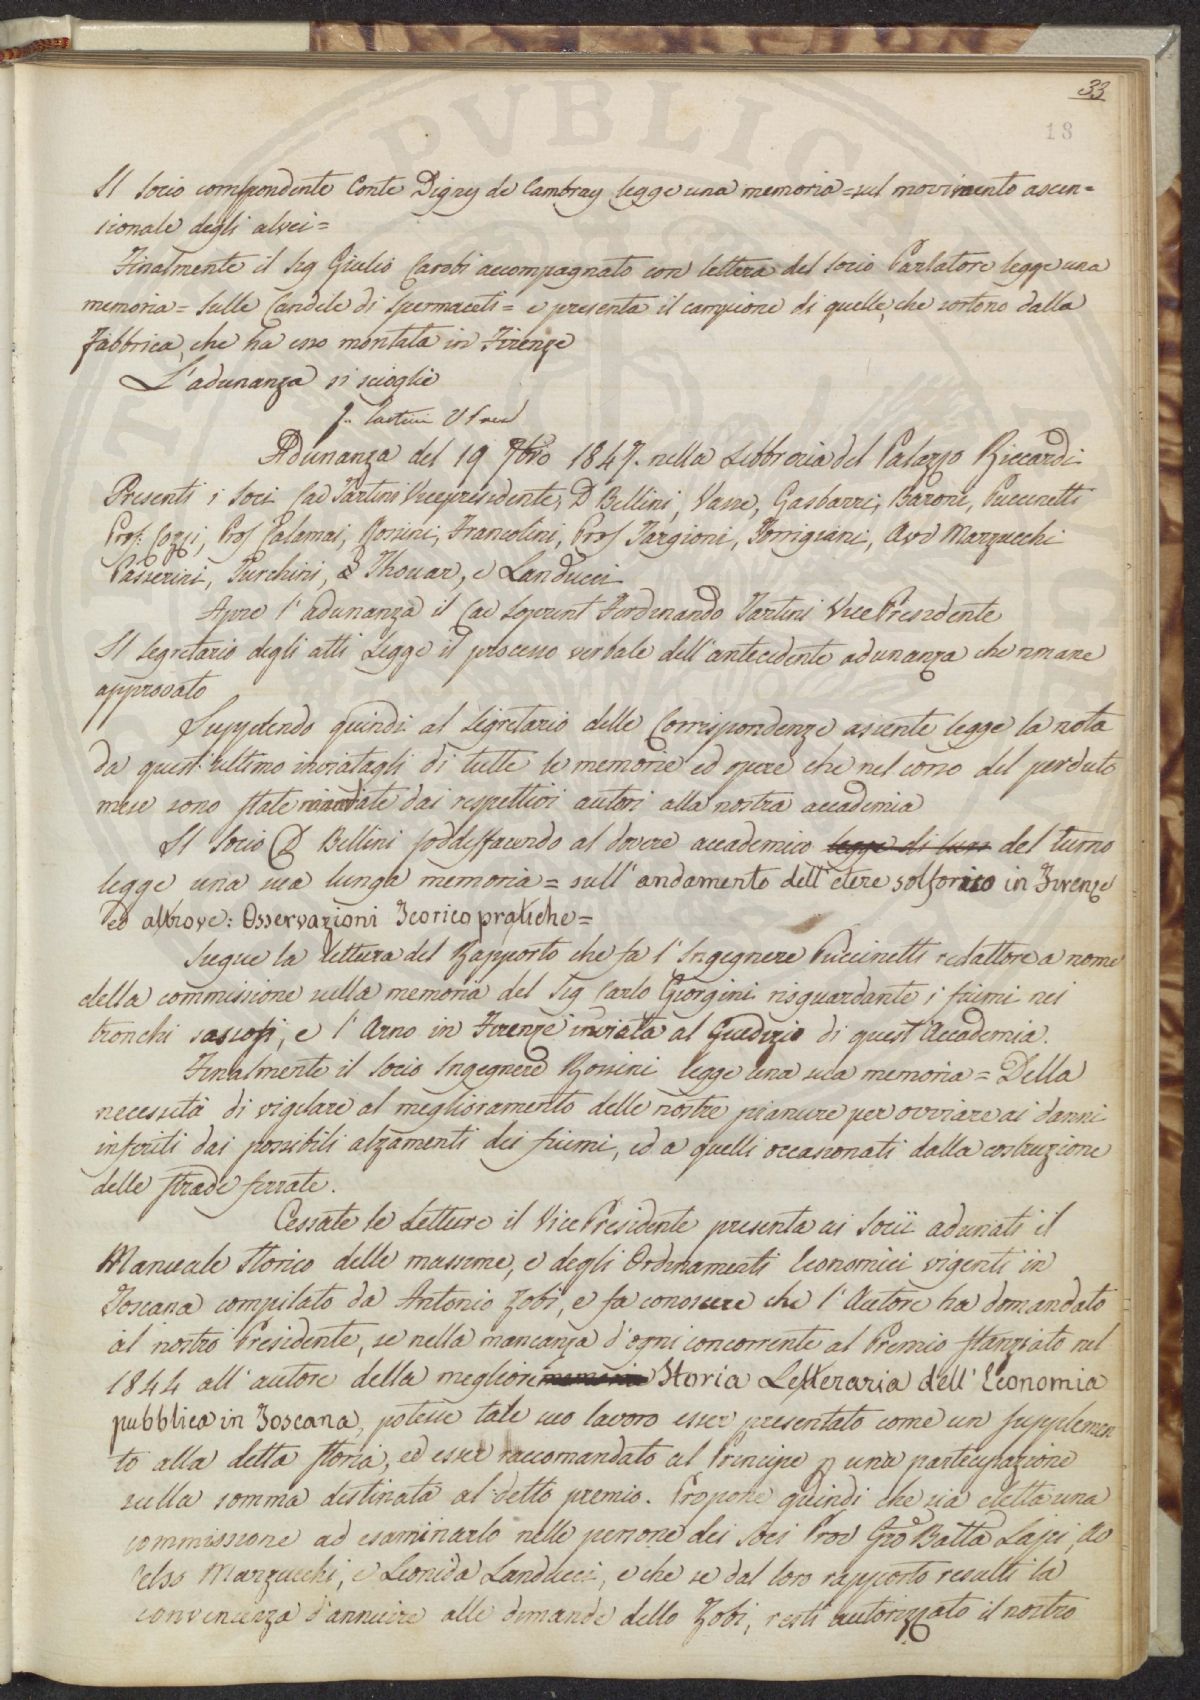 33
18
Il Socio corrispondente Conte Digny de Cambray legge una memoria = sul movimento ascen=
sionale degli alvei =
Finalmente il Sig Giulio Carobi accompagnato con lettera del Socio Parlatore legge una
memoria = Sulle Candele di Spermaceti = e presenta il campione di quelle, che sortono dalla
Fabbrica, che ha esso montata in Firenze
L'adunanza si scioglie
F. Tartini V Pres
Adunanza del 19 9bre 1847. nella Libbreria del Palazzo Riccardi
Presenti i Soci Cav Tartini Vicepresidente, D Bellini, Vanni, Gasbarri, Baroni, Puccinetti
Prof. Cozzi, Prof Calamai, Rossini, Francolini, Prof Targioni, Torrigiani, Avv Marzucchi
Passerini, Turchini, Thouar, e Landucci
Apre l'adunanza il Cav Soprint Ferdinando Tartini Vice Presidente
Il Segretario degli atti Legge il processo verbale dell'antecedente adunanza che rimane
approvato
Supplendo quindi al Segretario delle Corrispondenze assente legge la nota
da quest'ultimo inviatagli di tutte le memorie ed opere che nel corso del perduto
mese sono state mandate dai respettivi autori alla nostra accademia
Il Socio D Bellini soddisfacendo al dovere accademico legge di suo del turno
legge una sua lunga memoria = sull'andamento dell'etere solforico in Firenze
ed altrove: Osservazioni Teorico pratiche =
Segue la lettura del Rapporto che fa l'Ingegnere Puccinetti redattore a nome
della commissione sulla memoria del Sig Carlo Giorgini risguardante i fiumi nei
tronchi sassosi, e l'Arno in Firenze inviata al Giudizio di quest'Accademia.
Finalmente il Socio Ingegnere Rossini legge una sua memoria = Della
necessità di vigilare al miglioramento delle nostre pianure per ovviare ai danni
inferiti dai possibili alzamenti dei fiumi, ed a quelli occasionati dalla costruzione
delle strade ferrate.
Cessate le Letture il Vice Presidente presenta ai Socii adunati il
Manuale Storico delle massime, e degli Ordinamenti Economici vigenti in
Toscana compilato da Antonio Zobi, e fa conoscere che l'Autore ha domandato
al nostro Presidente, se nella mancanza d'ogni concorrente al Premio stanziato nel
1844 all'autore della migliore memoria Storia Letteraria dell'Economia
pubblica in Toscana, potesse tale suo lavoro esser presentato come un supplemen
to alla detta storia, ed esser raccomandato al Principe p una partecipazione
sulla somma destinata al detto premio. Propone quindi che sia eletta una
commissione ad esaminarlo nelle persone dei Soci Prov Gio Batta Lapi, Av
Celso Marzucchi, e Leonida Landucci, e che se dal loro rapporto resulti la
convenienza d'annuire alle dimande dello Zobi, resti autorizzato il nostro